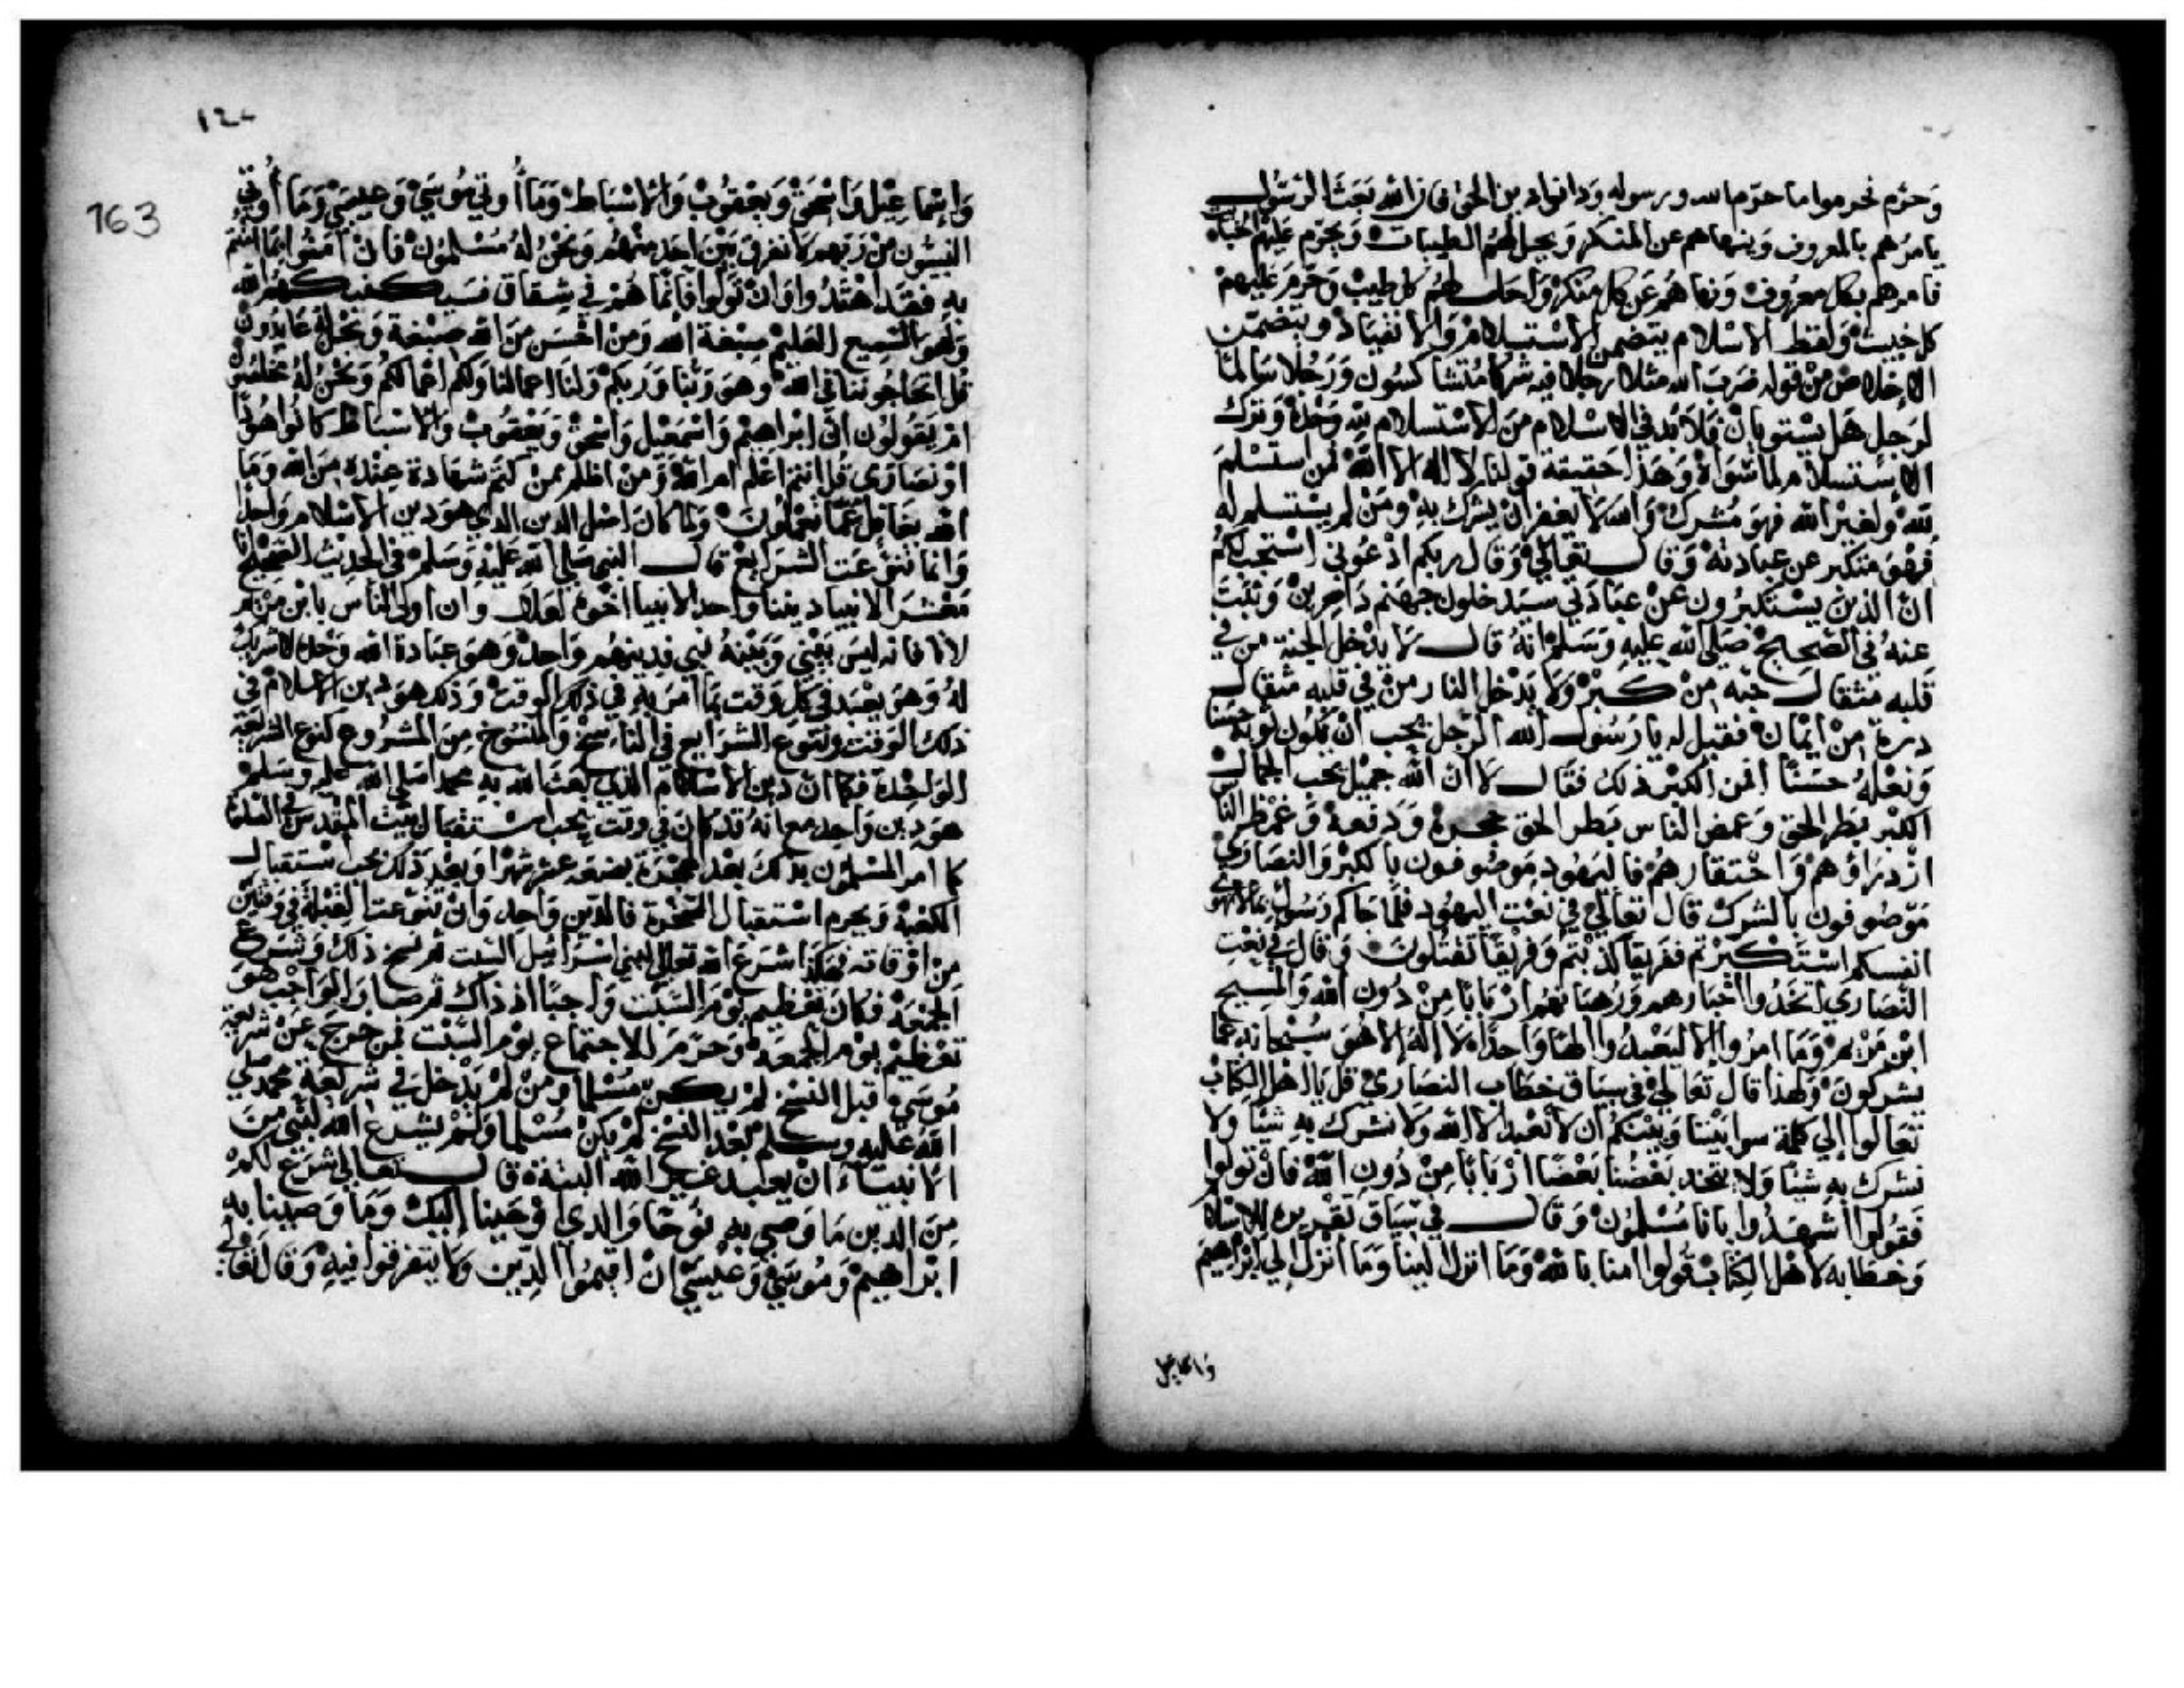 وَحَرَّم فحرموا ما حرّم الله ورسوله وَدانوا دين الحق فان الله بَعَثَ الرسُول
يامرُهم بالمعروف وَينهاهم عن المنكر وَيحل لهم الطيبات وَيحرّم عَليهم الخبائث
فامرهم بكل معرُوف وَنهاهُم عَن كل منكر وَاحل لهُم كل طيبْ وَحرّمَ عَليهمْ
كل خبيث وَلفظ الاسْلام يتضمن الاستسلامْ وَالانقيادْ ويتضمّن
الاخلاص منْ قوله ضرَبَ الله مثلا رجلا فيه شركا مُتشاكسُون وَرَجُلا سَالمًا
لرَجل هَل يسْتويانْ فلابُد في الاسْلام منَ الاسْتسلام لله وَحْدهُ وَترك
الاسْتسلام لما سوَاهُ وَهَذا حَقيقة قولنا لا اله الا الله فمن استسْلمَ
للهْ وَلغيْر الله فهوَ مُشرك وَالله لا يَغفر انْ يشرك بهِ ومَنْ لم يسْتسلم له
فهْوَ متكبر عن عبادتهْ وَقال تعَاليْ وَقال ربكم ادْعُوني اسْتجب لكم
انّ الذين يسْتكبرُون عَنْ عبَادَتي سيَدخلون جهنم دَاخرِينْ وَثبَتَ
عنهُ في الصّحيحْ صَلى الله عليهِ وَسَلمْ انهُ قال لا يدْخل الجنة من في
قلبه مثقال حبّه منْ كبرْ وَلا يَدْخل النار منْ في قلبه مثقال
ذرة منْ ايمَانْ فقيل له يا رَسُول الله الرّجل يحب انْ يكون ثوبه حسَنا
وَنعْلهُ حسَنًا افمن الكبْر ذلك فقال لا انّ الله جميْل يحب الجمال
الكبْر بَطَر الحق وَغمض الناس بَطر الحق جحده وَدفعهُ وَغمط النّاس
ازْدرَاؤهمْ وَاحْتقارهُمْ فاليَهُود مَوصُوفون بالكبْر وَالنصَارَي
مَوْصُوفون بالشركْ قال تعَالي في نعْت اليهُود افكلّما جَاكم رَسُول بما لا تهوي
انفسكم اسْتكبَرْتم ففريقًا كذبْتم وَفريْقًا تقتُلونَ وَقالَ في نعْت
النّصَاري اتخذُوا احْبَارهم وَرهبَانهُم ارْبَابًا مِنْ دُون الله وَالمسِيح
ابْن مَرْيمْ وَمَا امرُوا الا ليَعْبدُوا الهًا وَاحدًا لا الهَ الا هوَ سُبْحانهُ عمّا
يشركونَ وَلهذا قال تعَاليْ في سيَاق خطَاب النصَاريْ قل يا اهل الكتابْ
تعَالوا الي كلمة سوا بيْننا وَبيْنكمُ ان لا نعْبد الا الله وَلا نشرك بهِ شيْئا وَلا
نشرك بهِ شيْئا وَلا يتخذ بَعْضنُا بَعْضًا ارْبَابًا مِنْ دُونِ اللهْ فانْ تولوا
فقولُوا اشْهدُوا بانا مُسْلمُونْ وَقال في سيَاق تقْريره للاسْلام
وَخطابه لاهْل الكتابْ قولوا امنا باللهْ وَمَا انزل الينا وَمَا انْزل الي ابْراهيمَ
واسماعيل
١٢٤
163
وَاِسْماعِيْل وَاسْحَقْ وَيعْقوُبْ وَالاسْبَاطْ وَمَا أُوتي مُوسَيْ وَعيسَيْ وَمَا أُوتي
النبيّون منْ رَبهم لا نفرق بَيْنَ احَد منهُم وَنحْنُ لهُ مُسْلمُونْ فانْ امَنُوا بمثل ما امنتُم
بهِ فقد اهْتدُوا وَانْ توَلوا فانمّا هُمْ في شقاق فسَيكفيكهُم الله
وَهُوَ السّميع العَليمْ صبْغة الله وَمنْ احْسَن منَ الله صبْغة وَنحْن لهُ عَابدُونْ
قل اتحَاجّوننا في اللهْ وَهوَ رَبّنا وَرَبكمْ وَلنا اعمَالنا وَلكم اعْمَالكمْ وَنحْنُ لهُ مخلصُون
امْ يَقولوُن انّ ابْراهيْم وَاسْمَعيْل وَاسْحقْ وَيعْقوُبْ وَالاسْبَاط كانوا هُودًا
اوْ نصَارَي قل اانتمْ اعْلم ام اللهْ وَمنْ اظلم ممنْ كتمَ شهَادة عندَهُ منَ الله وَمَا
الله بغَافل عَمّا تعْملُونَ وَلما كانَ اصْل الدين الذي هوَ دين الاسْلام وَاحدًا
وَانما تنوّعَت الشرَايعْ قال النبي صَلي الله عَليْهِ وَسَلمْ في الحَديْث الصَحيْح انا
مَعْشَر الانبيا ديننا وَاحد الانبيا اخْوة لعَلات وَان اولي الناس بابن مرْيم
لانا فانه ليسَ بَيْني وَبَيْنهُ نبي فدينهُم وَاحدْ وَهوَ عبَادة الله وَحْدهُ لا شريك
لهُ وَهوَ يعْبَد في كل وَقت بمَا امرَ بهِ في ذلك الوَقت وَذلك هوَ دين الاسْلام في
ذلك الوَقت وَتنوّع الشرَايع في الناسخْ وَالمنسُوخ منَ المشرُوع كتنوع الشريعَة
الوَاحدَة فكما انّ دين الاسْلام الذي بَعَث الله بهِ محمدا صَلي الله عليهِ وسلم
هوَ دين وَاحد مع انهُ قد كانَ في وَقت يجب اسْتقبَال بَيْت المقْدس في الصَلاة
كما امر المسْلمُون بذلك بَعْد الهجْرَة بضعَة عشر شهْرًا وَبعْدَ ذلك يجب اسْتقبال
الكعْبة وَيحرم اسْتقبَال الصّخْرة فالدّين وَاحد وَانْ تنوّعت القبْلة في وَقتيْن
منْ اوْقاته فهَكذا شرَع الله تعَالي لبني اسْرَائيْل السّبت ثمّ نسخ ذلك وَشرع
الجمْعَة فكانَ تعْظيم يَوْم السّبت وَاجبًا اذ ذاك ثم صَار الوَاجب هوَ
تعْظيم يَوْم الجمعَة وَحرّمَ الاجتماع يَوْم السّبْت فمن خرجَ عَنْ شريعَة
مُوسَيْ قبل النسْخ لمْ يكن مُسْلما وَمنْ لمْ يَدْخل في شريْعَة محمد صَلي
الله عليه وسلم بَعْد النسْخ لمْ يكنْ مُسْلما وَلمْ يشرع الله لنبي منَ
الانبيَاء انْ يعبد غير الله البتة قال تعالي شرَع لكمْ
منَ الدين مَا وَصي بهِ نوُحًا وَالذي اوْحيْنا اليكَ وَمَا وَصّيْنا بهِ
ابْراهيمْ وَمُوسَيْ وَعيْسَيْ انْ اقيمُوا الدّين وَلا تتفرّقوا فيهْ وَقال تعَالي